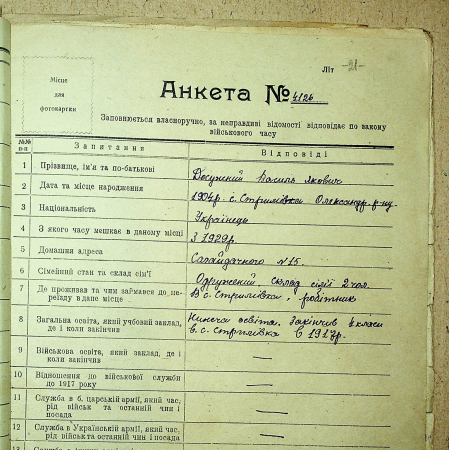 Літ -21-
Місце
для
фотокарки
Анкета № 4126
Заповнюється власноручно, за неправдиві відомості відповідає по закону
військового часу
№№ п-п Запитання Відповіді
1 Прізвище, ім'я та по-батькові Досужений Василь Якович
2 Дата та місце народження 1904р. с. Стрилівка Олександр. р-ну
3 Національність Українець
4 З якого часу мешкає в даному місці З 1929р.
5 Домашня адреса Сагайдачного №15
6 Сімейний стан та склад сім'ї Одружений. склад сім'ї 2 чол.
7 Де проживав та чим займався до пе-
реїзду в дане місце В с. Стрилівка, робітник
8 Загальна освіта, який учбовий заклад,
де і коли закінчив Нижча освіта. Закінчив 4 класи
в с. Стрилівка в 1917р.
9 Військова освіта, який заклад, де і
коли закінчив —
10 Відношення до військової служби
до 1917 року —
11 Служба в б. царській армії, який час,
рід військ та останній чин і
посада —
12 Служба в Українській армії, який час,
рід військ та останній чин і посада —
13